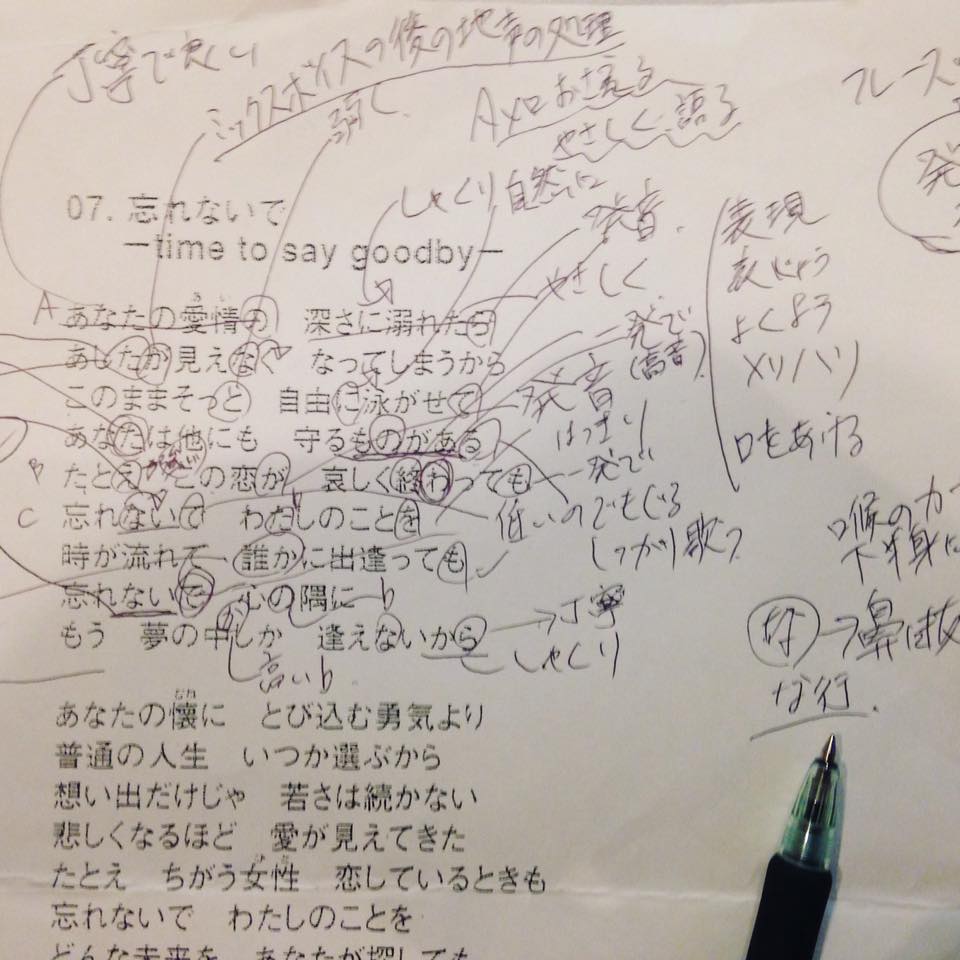 丁寧で良い
ミックスボイスの後の地声の処理
弱く
Aメロ
やさしく語る
フレーズ
しゃくり 自然に
発音
やさしく
一発で
(高音)
発音
はっきり
一発で
低いのでもぐる
しっかり歌う
表現
よくよう
メリハリ
口をあける
喉の力
下半身に
な→鼻に抜
な行
07. 忘れないで
ーtime to say goodbyー
A
あなたの愛情の 深さに溺れたら
あしたが見えなく なってしまうから
このままそっと 自由に泳がせて
あなたは他にも 守るものがある
B
たとえ この恋が 哀しく終わっても
C
忘れないで わたしのことを
時が流れて 誰かに出逢っても
忘れないで 心の隅に
もう 夢の中しか 逢えないから
→丁寧
しゃくり
高い
あなたの懐に とび込む勇気より
普通の人生 いつか選ぶから
想い出だけじゃ 若さは続かない
悲しくなるほど 愛が見えてきた
たとえ ちがう女性 恋しているときも
忘れないで わたしのことを
どんな未来を あなたが探しても